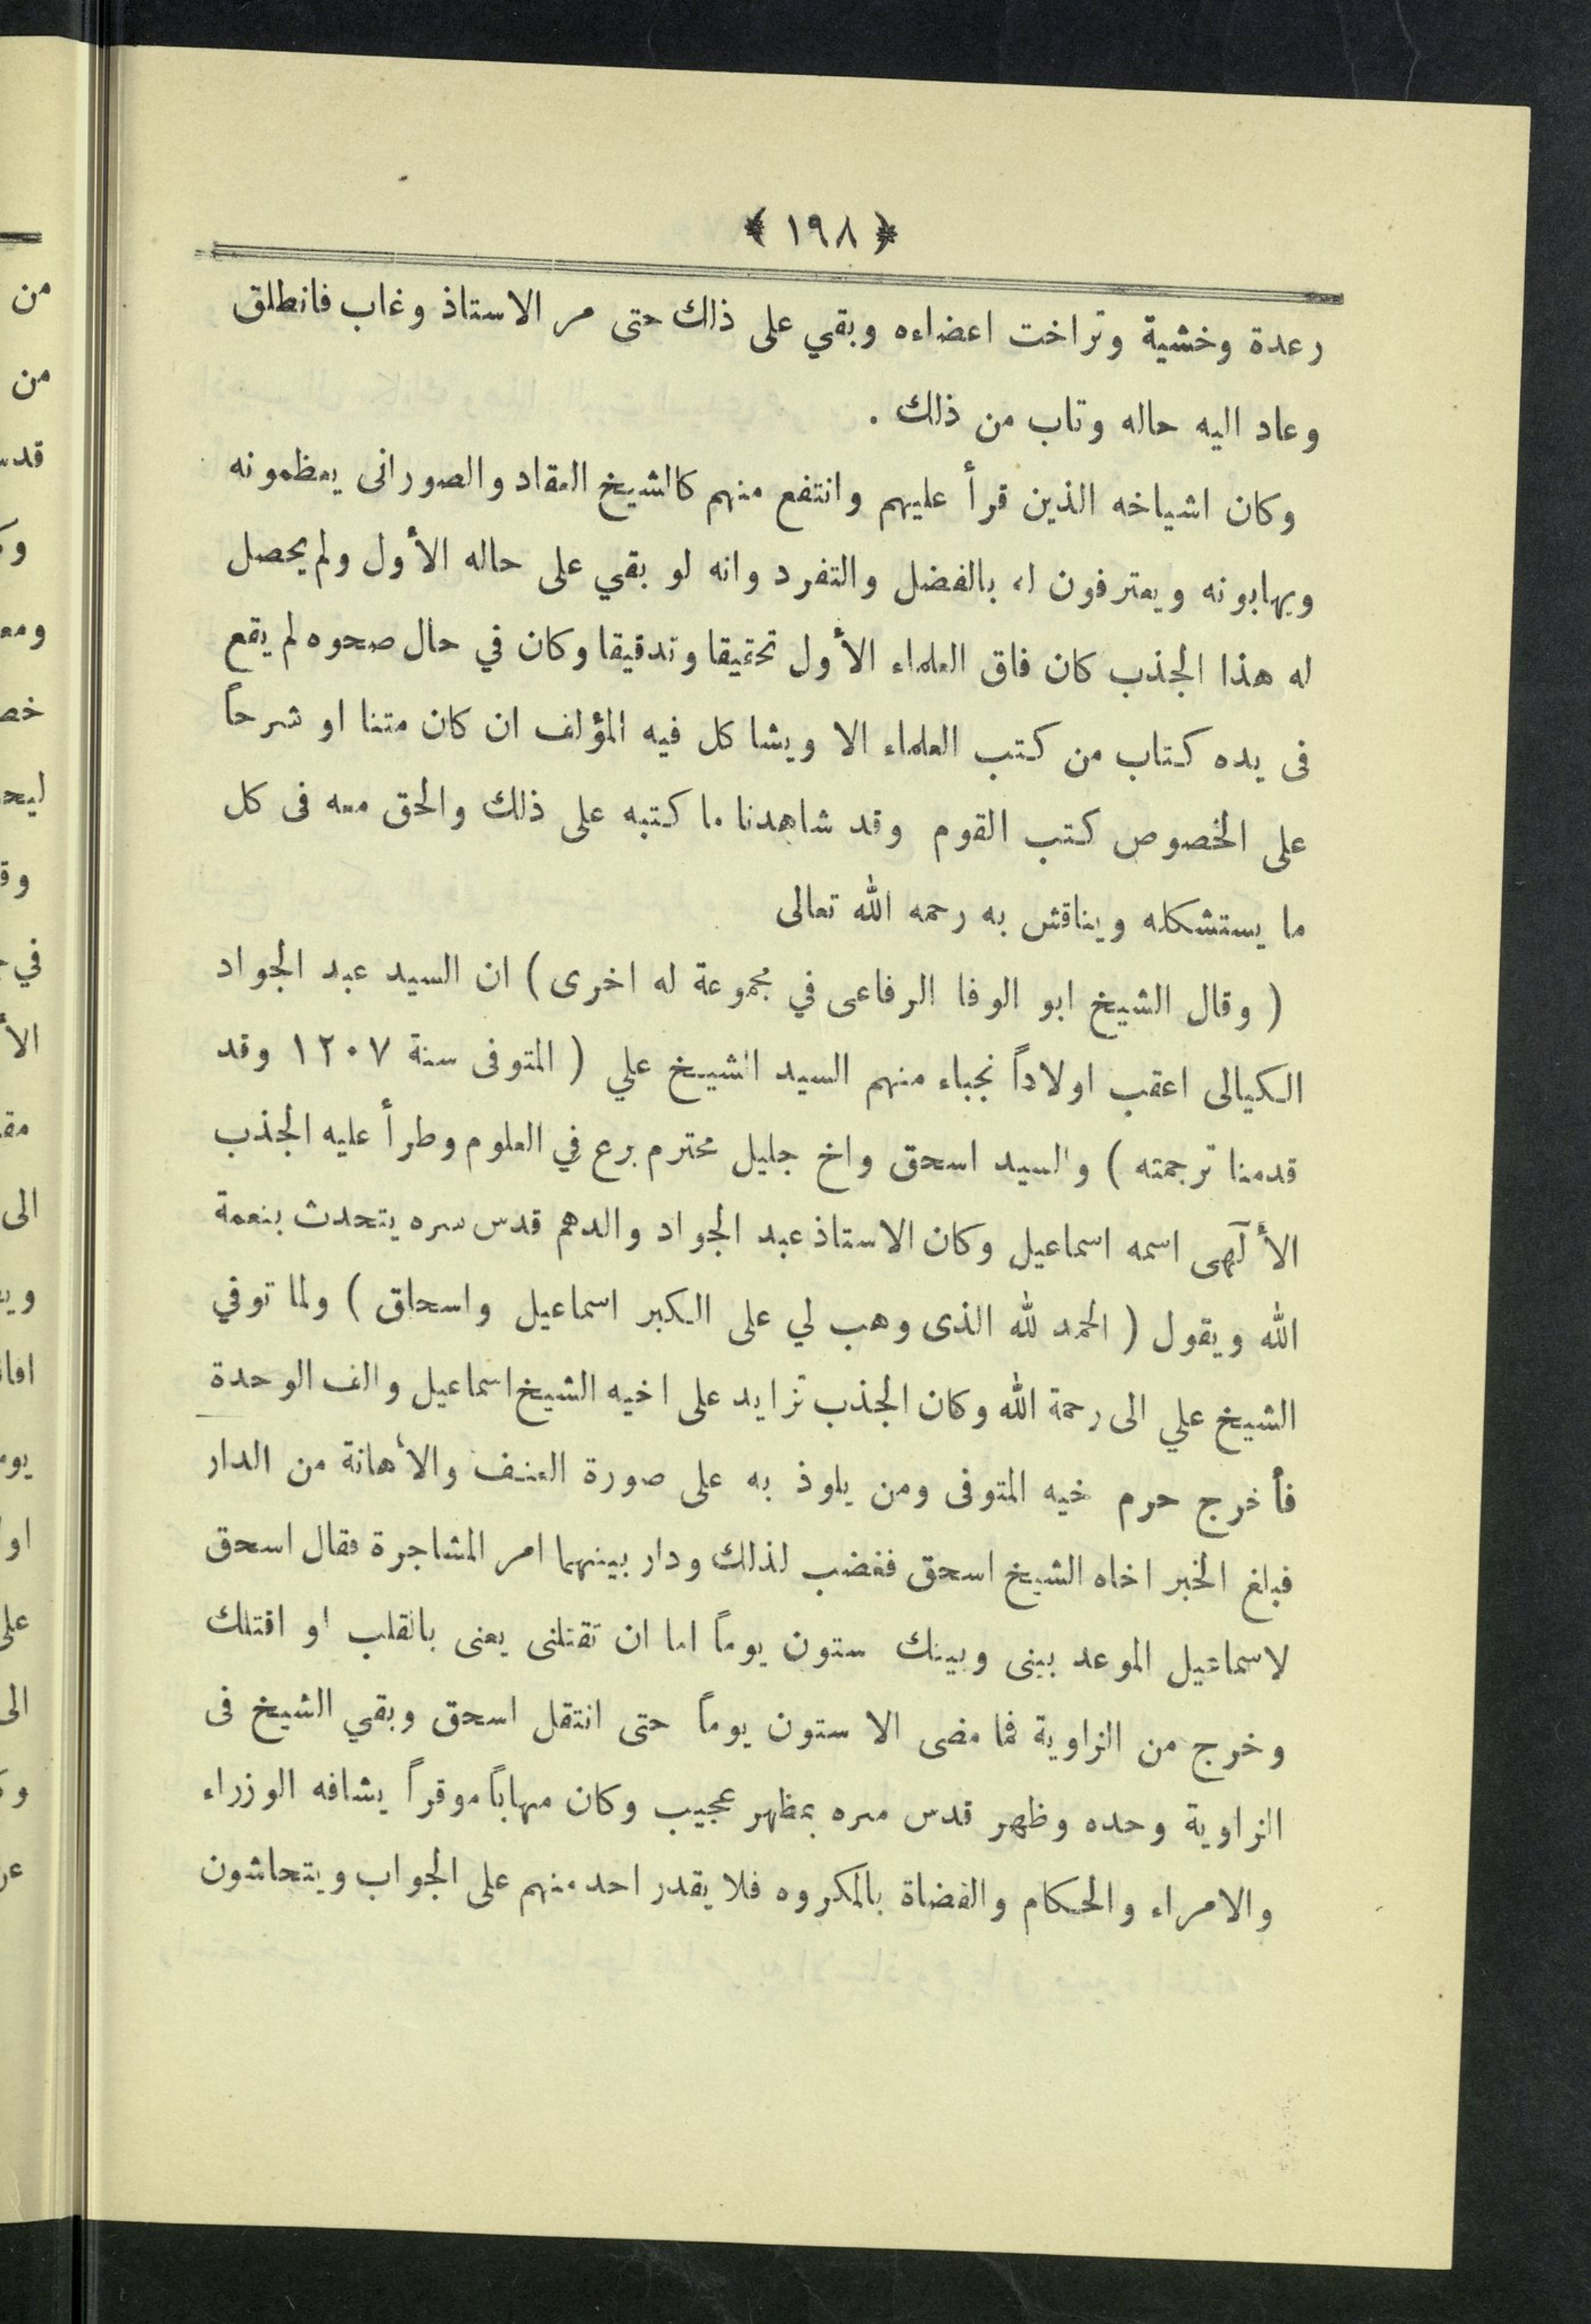 ﴿ ١٩٨ ﴾
رعدة وخشية وتراخت اعضاءه وبقي على ذلك حتى مر الاستاذ وغاب فانطلق
وعاد اليه حاله وتاب من ذلك .
وكان اشياخه الذين قرأ عليهم وانتفع منهم كالشيخ العقاد والصورانى يعظمونه
ويهابونه ويعترفون له بالفضل والتفرد وانه لو بقي على حاله الأول ولم يحصل
له هذا الجذب كان فاق العلماء الأول تحقيقا وتدقيقا وكان في حال صحوه لم يقع
فى يده كتاب من كتب العلماء الا ويشاكل فيه المؤلف ان كان متنا او شرحاً
على الخصوص كتب القوم وقد شاهدنا ما كتبه على ذلك والحق معه فى كل
ما يستشكله ويناقش به رحمه الله تعالى
( وقال الشيخ ابو الوفا الرفاعى في مجموعة له اخرى ) ان السيد عبد الجواد
الكيالى اعقب اولاداً نجباء منهم السيد الشيخ علي ( المتوفى سنة ١٢٠٧ وقد
قدمنا ترجمته ) والسيد اسحق واخ جليل محترم برع في العلوم وطرأ عليه الجذب
الأ آلهى اسمه اسماعيل وكان الاستاذ عبد الجواد والدهم قدس سره يتحدث بنعمة
الله ويقول ( الحمد لله الذى وهب لي على الكبر اسماعيل واسحاق ) ولما توفي
الشيخ علي الى رحمة الله وكان الجذب تزايد على اخيه الشيخ اسماعيل والف الوحدة
فأخرج حرم خيه المتوفى ومن يلوذ به على صورة العنف والأهانة من الدار
فبلغ الخبر اخاه الشيخ اسحق فغضب لذلك ودار بينهما امر المشاجرة فقال اسحق
لاسماعيل الموعد بينى وبينك ستون يوماً اما ان تقتلنى يعنى بالقلب او اقتلك
وخرج من الزاوية فما مضى الا ستون يوماً حتى انتقل اسحق وبقي الشيخ فى
الزاوية وحده وظهر قدس سره بمظهر عجيب وكان مهاباً موقراً يشافه الوزراء
والامراء والحكام والقضاة بالمكروه فلا يقدر احد منهم على الجواب ويتحاشون